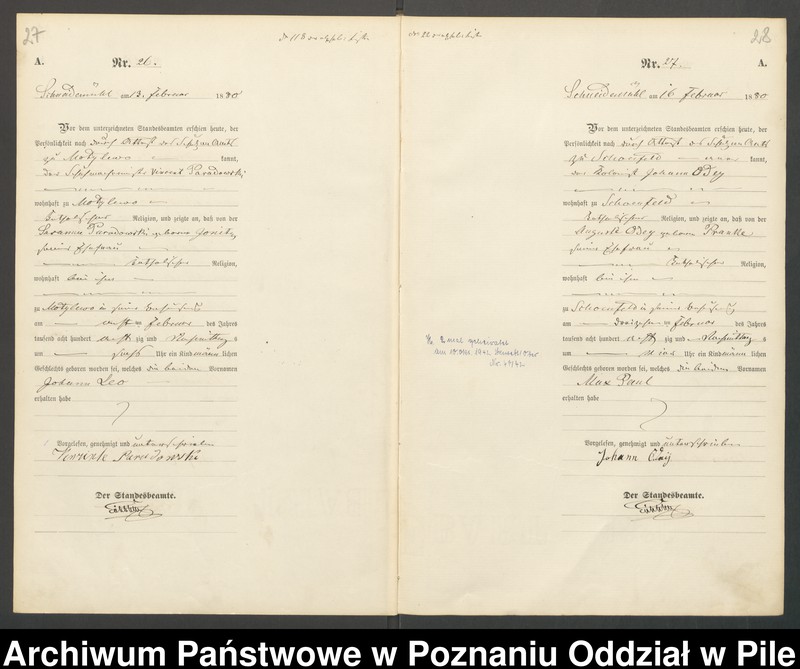 27
A.
Nr. 26.
Schneidemühl am 13. Februar 1880
Vor dem unterzeichneten Standesbeamten erschien heute, der
Persönlichkeit nach durch Attest des Schulzen Amts
zu Motylewo kannt,
der Vincent Paradowski
wohnhaft zu Motylewo
katholischer Religion, und zeigte an, daß von der
Paradowski geborne
seiner Ehefrau
katholischer Religion,
wohnhaft bei ihm
zu Motylewo in seiner Behausung
am Februar des Jahres
tausend acht hundert acht zig und Nachmittag s
um sechs Uhr ein Kind männ lichen
Geschlechts geboren worden sei, welches die beiden Vornamen
Johann Leo
erhalten habe
Vorgelesen, genehmigt und unterschrieben
Paradowski
Der Standesbeamte.
28
Nr. 27.
A.
Schneidemühl am 16 Februar 1880
Vor dem unterzeichneten Standesbeamten erschien heute, der
Persönlichkeit nach durch Attest des Schulzen Amts
zu Schoenfeld kannt,
der Kolonist Johann Odey
wohnhaft zu Schoenfeld
katholischer Religion, und zeigte an, daß von der
Auguste Odey geborne Franke
seiner Ehefrau
katholischer Religion,
wohnhaft bei ihm
zu Schoenfeld in seiner Behausung
am dreizehnten Februar des Jahres
tausend acht hundert acht zig und Nachmittag s
um Uhr ein Kind männ lichen
Geschlechts geboren worden sei, welches die beiden Vornamen
Max Paul
erhalten habe
Vorgelesen, genehmigt und unterschrieben
Johann
Der Standesbeamte.
Archiwum Państwowe w Poznaniu Oddział w Pile